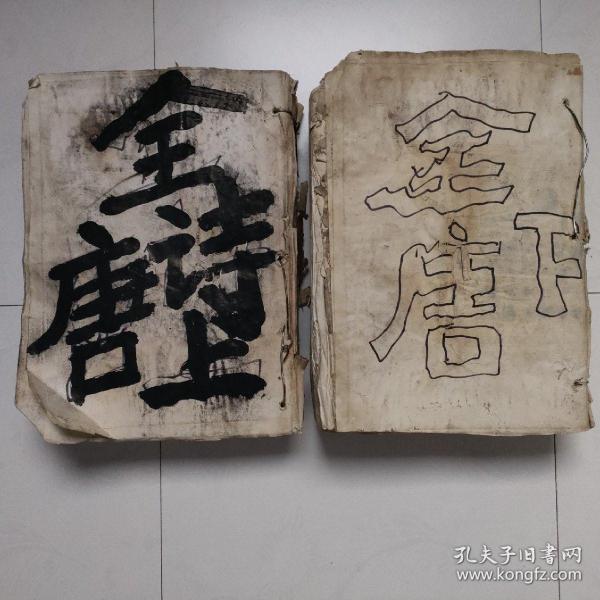 全
唐
诗
上
全
唐
下
孔夫子旧书网
www.kongfz.com